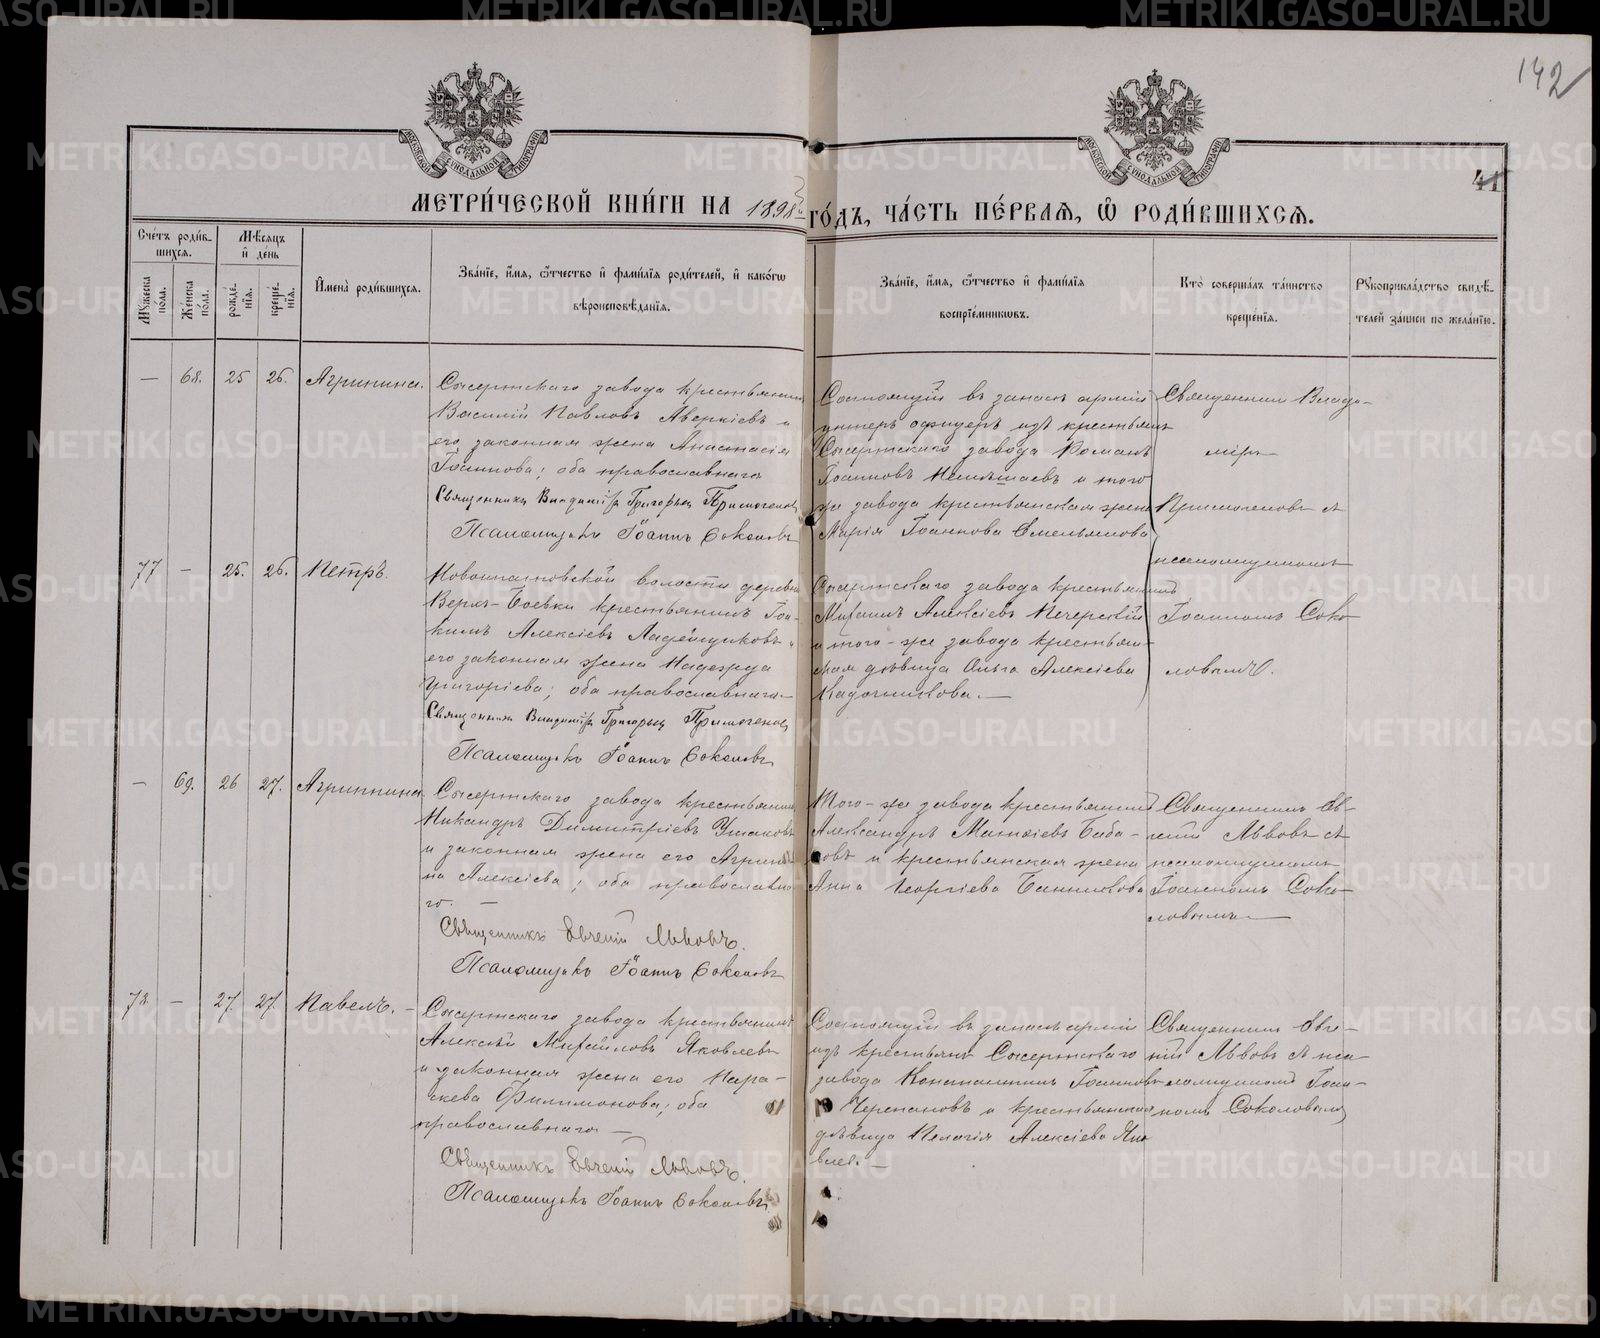 142
41
МОСКОВСКОЙ СѴНОДАЛЬНОЙ ТИПОГРАФІИ
МОСКОВСКОЙ СѴНОДАЛЬНОЙ ТИПОГРАФІИ
МЕТРИ́ЧЕСКОЙ КНИ́ГИ НА 1898 й ГО́ДЪ, ЧА́СТЬ ПЕ́РВАЯ, Ѽ РОДИ́ВШИХСЯ.
Сче́тъ роди́в-
шихся.
Мѣ́сяцъ
и҆ де́нь
Мꙋ́жеска по́ла.
Же́нска по́ла.
рожде́-нїѧ.
креще́-нїѧ.
И҆мена̀ роди́вшихсѧ.
Зва́нїе, и҆́мѧ, ѻ҆́тчество и҆ фами́лїѧ роди́телей, и҆ како́гѡ
вѣроисповѣ́данїѧ.
Зва́нїе, и҆́мѧ, ѻ҆́тчество и҆ фами́лїѧ
воспрїе́мникѡвъ.
Кто̀ соверша́лъ та́инство
креще́нїѧ.
Рꙋкоприкла́дство свидѣ́-
телей за́писи по жела́нїю.
— 68. 25 26. Агрипина.
Сысертскаго завода крестьянинъ
Василій Павловъ Аверкіевъ и
его законная жена Анастасія
Іоаннова; оба православнаго
Священникъ Владиміръ Григорьевъ Примогеновъ
Псаломщикъ Іоаннъ Соколовъ
Состоящій въ запасѣ арміи
унтеръ офицеръ изъ крестьянъ
Сысертскаго завода Романъ
Іоанновъ и того
же завода крестьянская жена
Марія Іоаннова Емельянова
Священник Влади-
міръ
Примогеновъ съ
псаломщикомъ
Іоанномъ Соко
ловымъ.
77 — 25. 26. Петръ.
Новоипатовской волости деревни
Верхъ-Боевки крестьянинъ Іоа-
кимъ Алексіевъ Ладейщиковъ и
его законная жена Надежда
Григоріева; оба православнаго—
Священникъ Владиміръ Григорьевъ Примогеновъ
Псаломщикъ Іоаннъ Соколовъ
Сысертскаго завода крестьянинъ
Михаилъ Алексіевъ Печерскій
и того-же завода крестьян-
ская дѣвица Ольга Алексіева
Кадочникова.—
— 69. 26 27. Агриппина
Сысертскаго завода крестьянинъ
Никандръ Димитріевъ Ушаковъ
и законная жена его Агрипи-
на Алексіева; оба православна-
го. —
Священникъ Евгеній Львовъ.
Псаломщикъ Іоаннъ Соколовъ
Того-же завода крестьянинъ
Александръ Матѳіевъ Баба-
ковъ и крестьянская жена
Анна Георгіева Банникова
Священникъ Ев-
геній Львовъ съ
псаломщикомъ
Іоанномъ Соко-
ловымъ—
78. — 27. 27. Павелъ. —
Сысертскаго завода крестьянинъ
Алексѣй Михаиловъ Яковлевъ
и законная жена его Пара-
скева Филимонова; оба
православнаго —
Священникъ Евгеній Львовъ.
Псаломщикъ Іоаннъ Соколовъ
Состоящій въ запасѣ арміи
изъ крестьянъ Сысертскаго
завода Константинъ Іоанновъ
Черепановъ и крестьянская
дѣвица Пелагія Алексіева Яко
влев. —
Священникъ Евге-
ній Львовъ съ пса-
ломщикомъ Іоан-
номъ Соколовымъ
METRIKI.GASO-URAL.RU